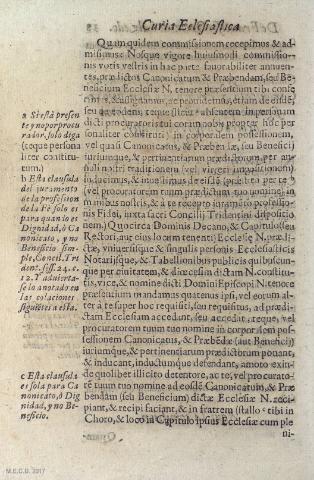 Curia Eclesiastica
Quam quidem commissionem recepimus & ad-
misimus: Nosque vigore huiusmodi commissio-
nis votis vestris in hac parte fauorabiliter annuen-
tes, prædictos Canonicatum & Præbendam, seu Be-
neficium Ecclesiæ N. tenore præsentium tibi confe-
rimus, & assignamus, ac prouidemus, etiam de eisdē,
teque
dicti procuratoris) coram nobis propter hoc per-
sonaliter constituti) in corporalem possessionem,
vel quasi Canonicatus, & Præbendæ, (seu Beneficij)
iuriumque, & pertinentiarum prædictorum, per an-
nuli nostri traditionem (vel virretri impositionem)
inducimus, & inuestimus de eisdē
(vel procuratorem tuum prædictum tuo nomine) in
manibus nostris, & à te recepto iuramēto professio-
nis Fidei, iuxta sacri Concilij Tridentini dispositio-
nem.) Quocirca Dominis Decano, & Capitulo (seu
Rectori, aut eius locum tenenti) Ecclesiæ N. prædi-
ctæ, vniuersisque & singulis personis Ecclesiasticis
Notarijsque, & Tabellionibus publicis quibuscun-
que per ciuitatem, & diœcesim dictam N. constitu-
tis, vice, & nomine dicti Domini Episcopi N. tenore
præsentium mandamus quatenus ipsi, vel eorum al-
ter à te super hoc requisiti, seu requisitus, ad prædi-
ctam Ecclesiam accedant, seu accedat, teque, vel
procuratorem tuum tuo nomine in corporalem pos-
sessionem Canonicatus, & Præbēdæ (aut Beneficij)
iuriumque, & pertinentiarum prædictorum ponant,
& inducant, inductumque defendant, amoto exin-
de quolibet illicito detentore, ac te, vel procurato-
rē tuum tuo nomine ad eosdē Canonicatum, & Præ
bendam (seu Beneficium) dictæ Ecclesiæ N. reci-
piant, & recipi faciant, & in fratrem (stallo c tibi in
Choro, & loco in Capitulo ipsius Ecclesiæ cum ple
ni-
a Si està presen
te y no por procu
rador, solo diga
(teque persona
liter constitu-
tum.)
b Esta clausula
del juramento
de la profession
de la Fè solo es
para quando es
Dignidad, ò Ca
nonicato, y no
Beneficio sim-
ple, Concil. Tri
dent. sess. 24. c.
12. Y aduierta-
se lo anotado en
las colaciones
siguiētes a esta.
c Esta clausula
es solo para Ca
nonicato, ò Dig
nidad, y no Be-
neficio.
M.E.C.D. 2017